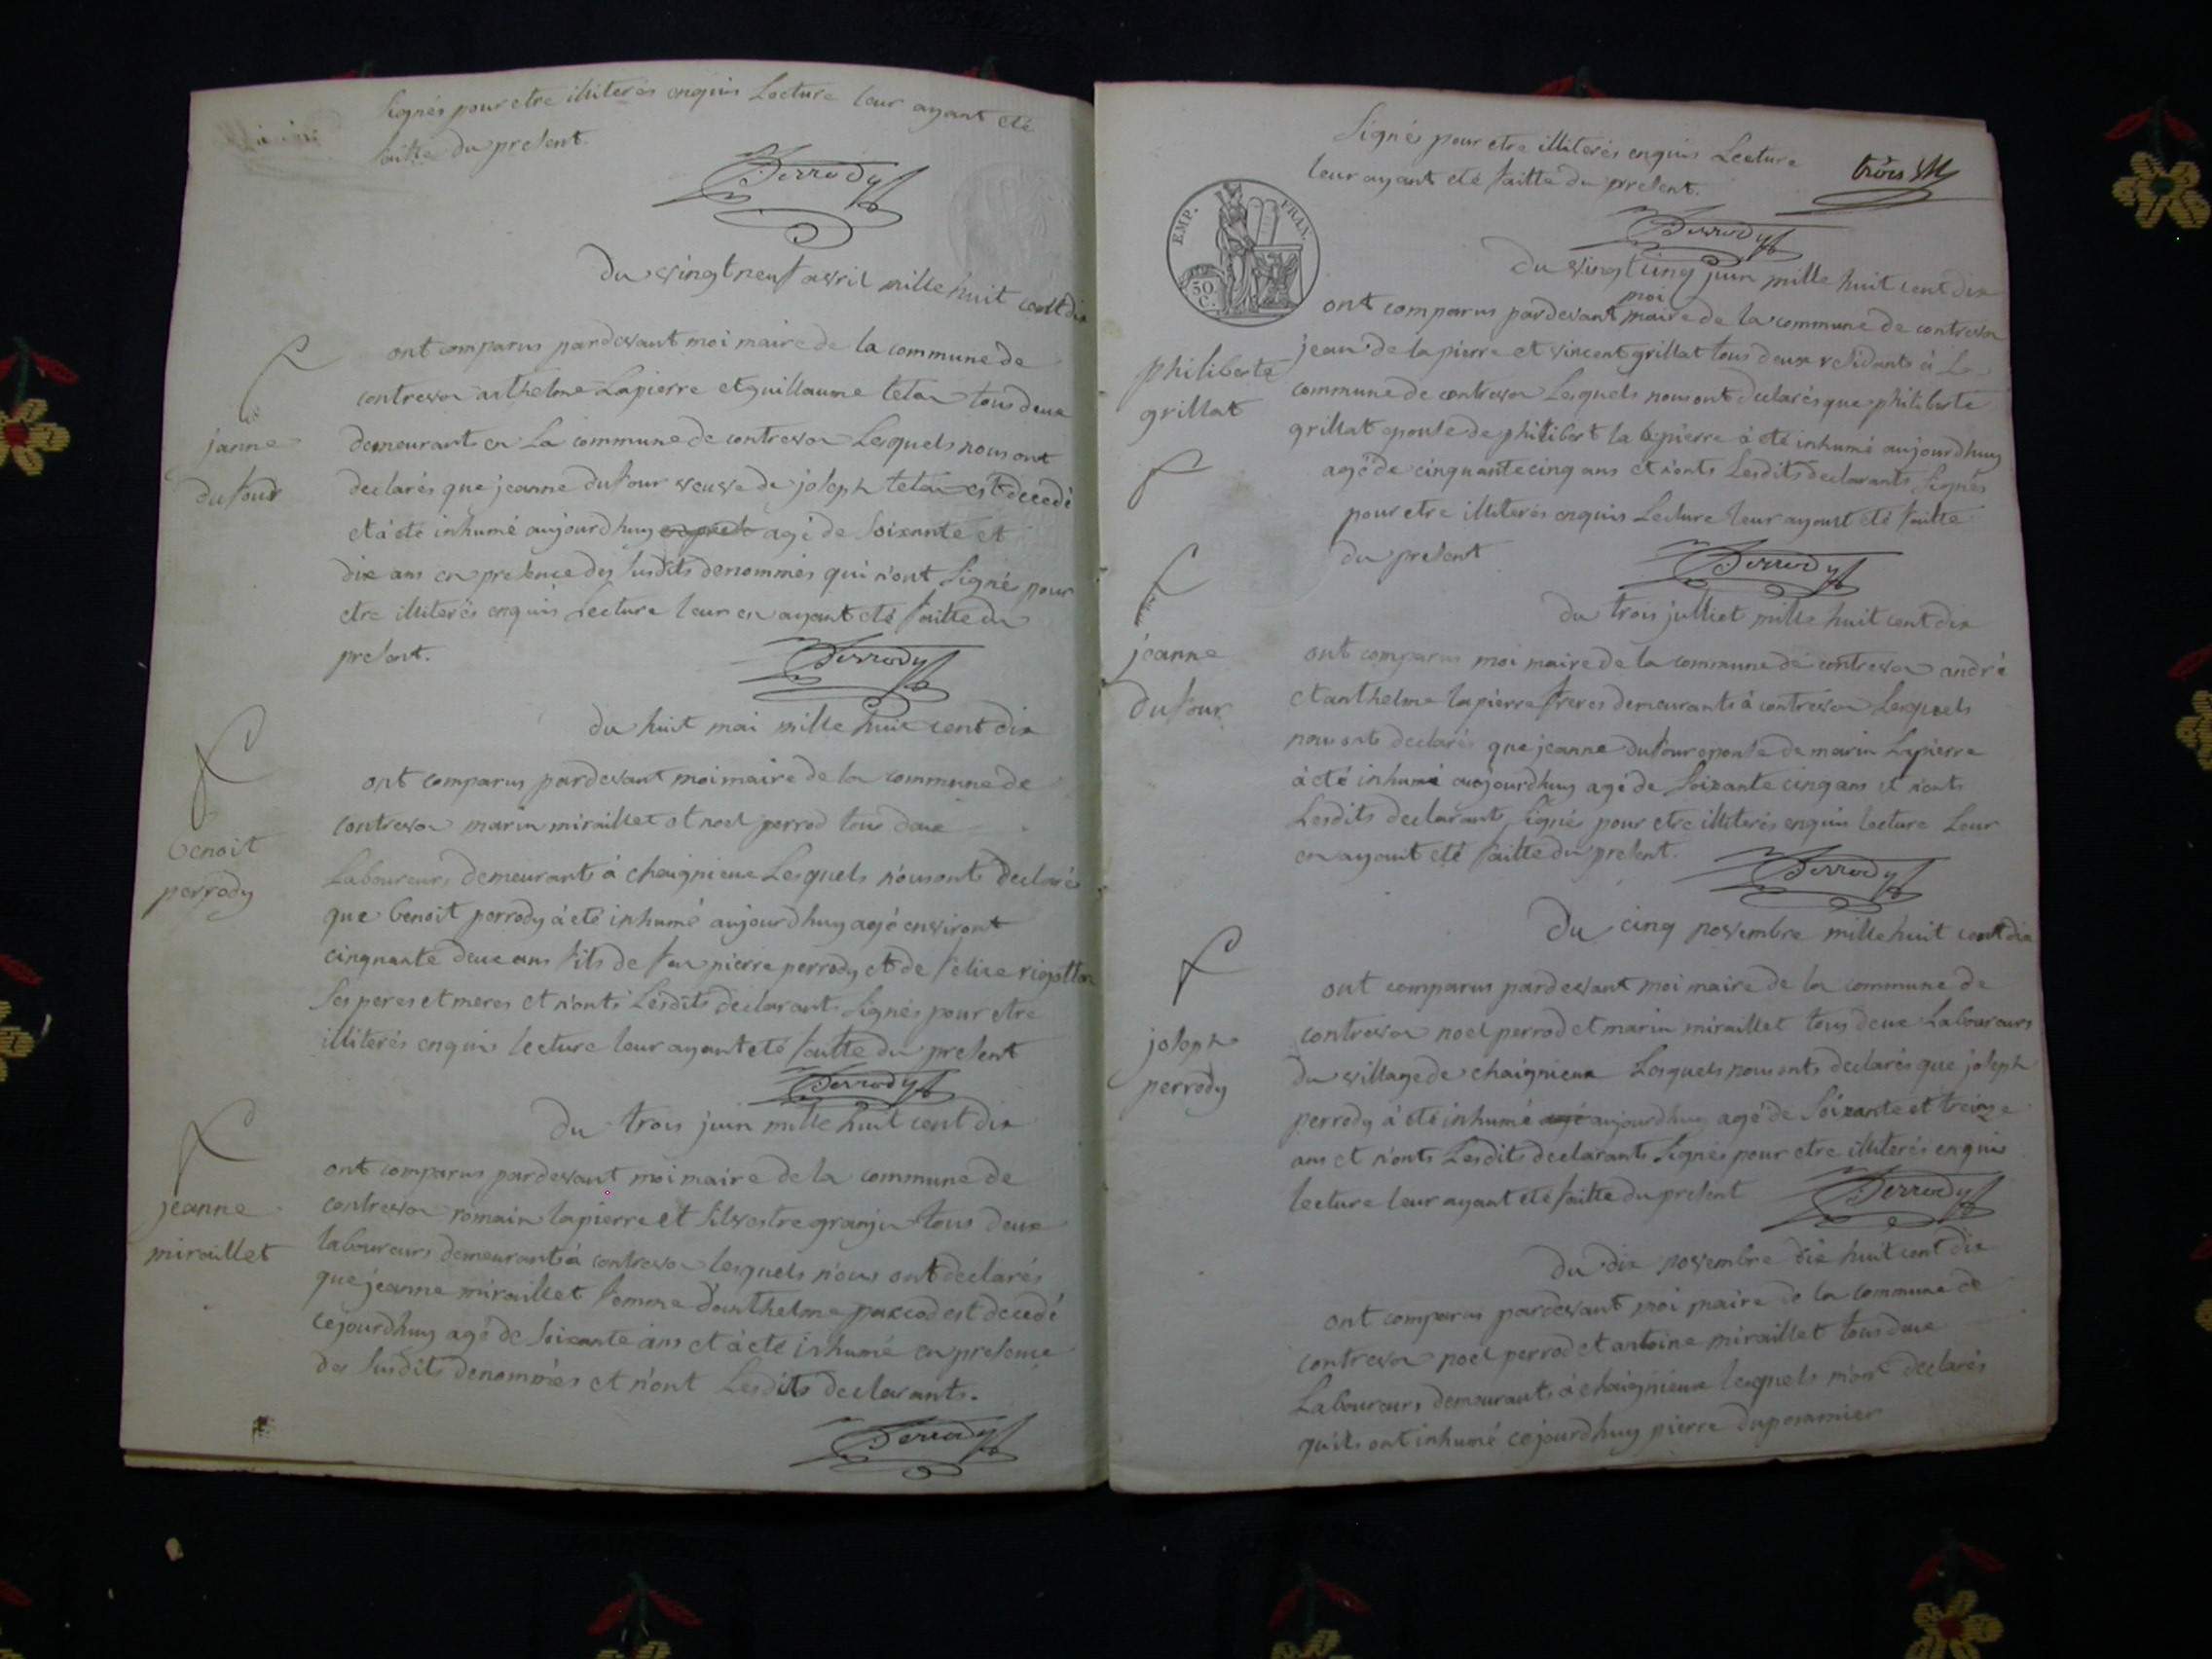 Signés pour etre illiterés enquis Lecture leur ayant eté
faitte du present.
Perrody
du vingt neuf avril mille huit cent dix
ont comparus pardevant moi maire de la commune de
contrevoz anthelme Lapierre et guillaume tetaz tous deux
janne
demeurant en La commune de contrevoz Lesquels nous ont
dufour
declarés que jeanne dufour veuve de joseph tetaz est decedé
et à eté inhumé aujourdhuy agé de soixante et
dix ans en presence des susdits denommés qui n'ont signés pour
etre illiterés enquis Lecture leur en ayant eté faitte du
present.
Perrody
du huit mai mille huit cent dix
ont comparus pardevant moi maire de la commune de
contrevoz marin miraillet et noel perrod tous deux
benoit
perrody
Laboureurs demeurants à chaignieux Lesquels nous ont declarés
que benoit perrody à eté inhumé aujourdhuy agé environt
cinquante deux ans fils de feu pierre perrody et de felise
ses peres et meres et n'onts Lesdits declarant signés pour etre
illiterés enquis lecture leur ayant eté faitte du present
Perrody
du trois juin mille huit cent dix
ont comparus pardevant moi maire de la commune de
jeanne
contrevoz romain lapierre et silvestre granju tous deux
miraillet
laboureurs demeurants à contrevoz lesquels nous ont declarés
que jeanne miraillet femme d'anthelme est decedé
cejourdhuy agé de soixante ans et à eté inhumé en presence
des susdits denommés et n'ont Lesdits declarants.
Perrody
Signés pour etre illiterés enquis Lecture
trois
leur ayant eté faitte du present.
EMP. FRAN.
50 C.
Perrody
du vingt cinq juin mille huit cent dix
moi
ont comparus pardevant maire de la commune de contrevoz
philiberte
jean de lapierre et vincent grillat tous deux residants à L
grillat
commune de contrevoz Lesquels nous ont declarés que philiberte
grillat epouse de philibert la pierre à eté inhumé aujourdhuy
agé de cinquante cinq ans et n'onts Lesdits declarants signés
pour etre illiterés enquis Lecture leur ayant eté faitte
du present
Perrody
du trois julliet mille huit cent dix
jeanne
ont comparus moi maire de la commune de contrevoz andré
dufour
et anthelme lapierre freres demeurants à contrevoz Lesquels
nous onts declarés que jeanne dufour epouse de marin Lapierre
à eté inhumé aujourdhuy agé de soixante cinq ans et n'onts
Lesdits declarants signés pour etre illiterés enquis lecture Leur
en ayant eté faitte du present.
Perrody
Du cinq novembre mille huit cent dix
ont comparus pardevant moi maire de la commune de
joseph
contrevoz noel perrod et marin miraillet tous deux Laboureurs
perrody
du village de chaignieux Lesquels nous onts declarés que joseph
perrody à eté inhumé aujourdhuy agé de soixante et treize
ans et n'onts Lesdits declarants signés pour etre illiterés enquis
lecture leur ayant eté faitte du present
Perrody
du dix novembre dix huit cent dix
ont comparus pardevant moi maire de la commune de
contrevoz noel perrod et antoine miraillet tous deux
Laboureurs demeurants à chaignieux lesquels n'ont declarés
qu'ils ont inhumé cejourdhuy pierre